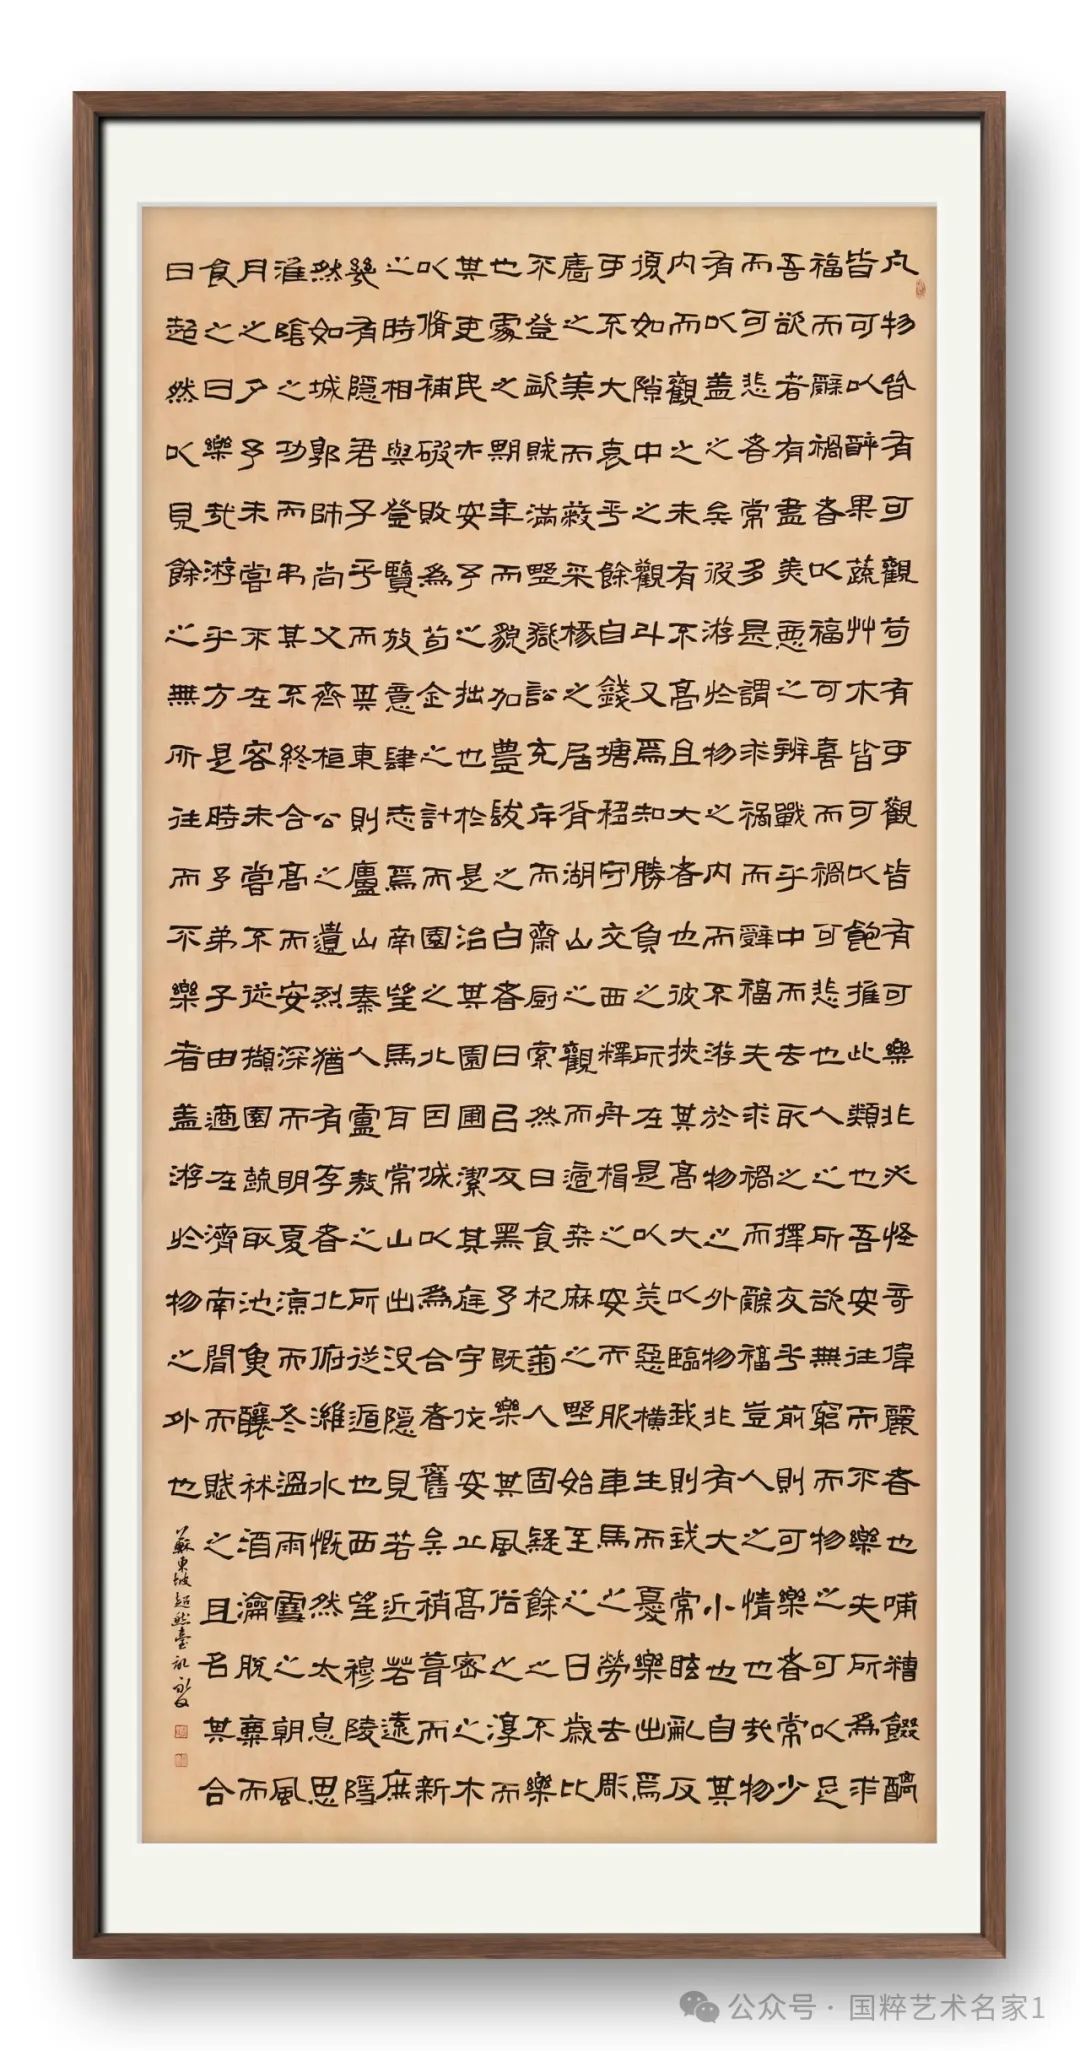 凡物皆有可觀苟有可觀皆有可樂非必怪奇偉麗者也哺糟餟醨
皆可以醉果蔬艸木皆可以飽推此類也吾安往而不樂夫所為求
福而辭禍者以福可喜而禍可悲也人之所欲無窮而物之可以足
吾欲者有盡美惡之辨戰乎中而去取之擇交乎前則可樂者常少
而可悲者常多是謂求禍而辭福夫求禍而辭福豈人之情也哉物
有以蓋之矣彼游於物之內而不游於物之外物非有大小也自其
內而觀之未有不高且大者也彼挾其高大以臨我則我常眩亂反
復如隙中之觀斗又為知勝負之所在是以美惡橫生而憂樂出焉
可不大哀乎餘自錢塘移守交西釋舟楫之安而服車馬之勞去彫
廧之美而蔽采椽之居背湖山之觀而適桑麻之野始至之日歲比
不登歉賊滿野獄訟充斥而齋厨索然日食杞菊人固疑餘之不樂
也處之期年而貌加豐髮之白者日已反黑予既樂其風俗之淳而
其吏民亦安予之拙也於是治其園圃潔其庭宇伐安丘高密之木
以脩補破敗為苟全之計而園之北因城以為台者舊矣稍葺而新
之時相與登覽放意肆志焉南望馬耳常山出沒隱見若近若遠庶
幾有隱君子乎而其東則廬山秦人盧敖之所從遁也西望穆陵隱
然如城郭師尚父齊桓公之遺烈猶有存者北俯濰水慨然太息思
淮陰之功而弔其不終台高而安深而明夏涼而冬溫雨雪之朝風
月之夕予未嘗不在客未嘗不從擷園蔬取池魚釀秫酒瀹脫粟而
食之曰樂哉游乎方是時予弟子由適在濟南聞而賦之且名其台
曰超然以見餘之無所往而不樂者蓋游於物之外也
蘇東坡超然臺記
公众号·国粹艺术名家1